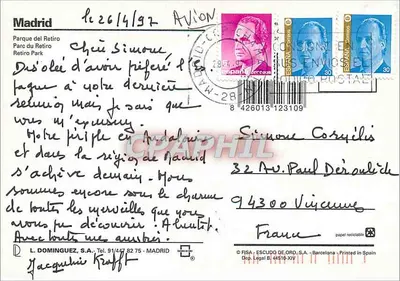 Madrid
Parque del Retiro
Parc du Retiro
Retiro Park
le 26/4/97
AVION
Chère Simone
Désolée d'avoir préféré l'Es
pagne à votre dernière
réunion mais je sais que
vous m'excusez.
Notre périple en Andalousie
et dans la région de Madrid
s'achève demain. Nous
sommes encore sous le charme
de toutes les merveilles que nous
avons pu découvrir. A bientôt.
Avec toutes mes amitiés.
Jacqueline Krafft
L. DOMINGUEZ, S.A. Tel. 91/447 82 75 - MADRID
España correos
España 30
España 30
MADRID
28
POSTAL
8 426013 123109
Simone Cornélis
32 Av. Paul Déroulède
94300 Vincennes
France
papel reciclable
© FISA - ESCUDO DE ORO, S.A. - Barcelona - Printed in Spain
Dep. Legal B. 44510-XIV
CPAPHIL